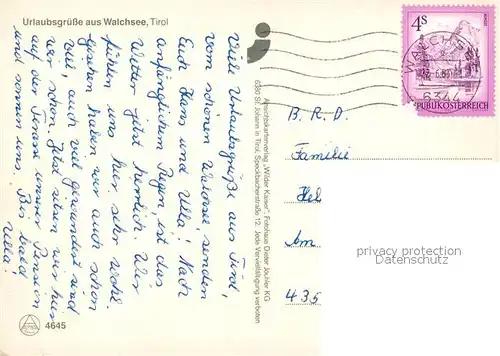 Urlaubsgrüße aus Walchsee, Tirol
Viele Urlaubsgrüße aus Tirol,
vom schönen Walchsee, senden
Euch Hans und Ulla! Nach
anfänglichem Regen, ist das
Wetter jetzt herrlich. Wir
fühlen uns hier sehr wohl.
Gestern haben wir auch schon
viel, auch viel gewandert sind
wir schon. Jetzt sitzen wir hier
auf der Terrasse unserer Pension
und sonnen uns. Bis bald
Ulla!
4645
Alpenlandkartenverlag „Wilder Kaiser“, Fotohaus Dieter Jöchler KG
6380 St. Johann in Tirol, Speckbacherstraße 12. Jede Vervielfältigung verboten
4S
REPUBLIK ÖSTERREICH
WALCHSEE
6344
B. R. D.
Familie
Hel
Am
435
privacy protection
Datenschutz